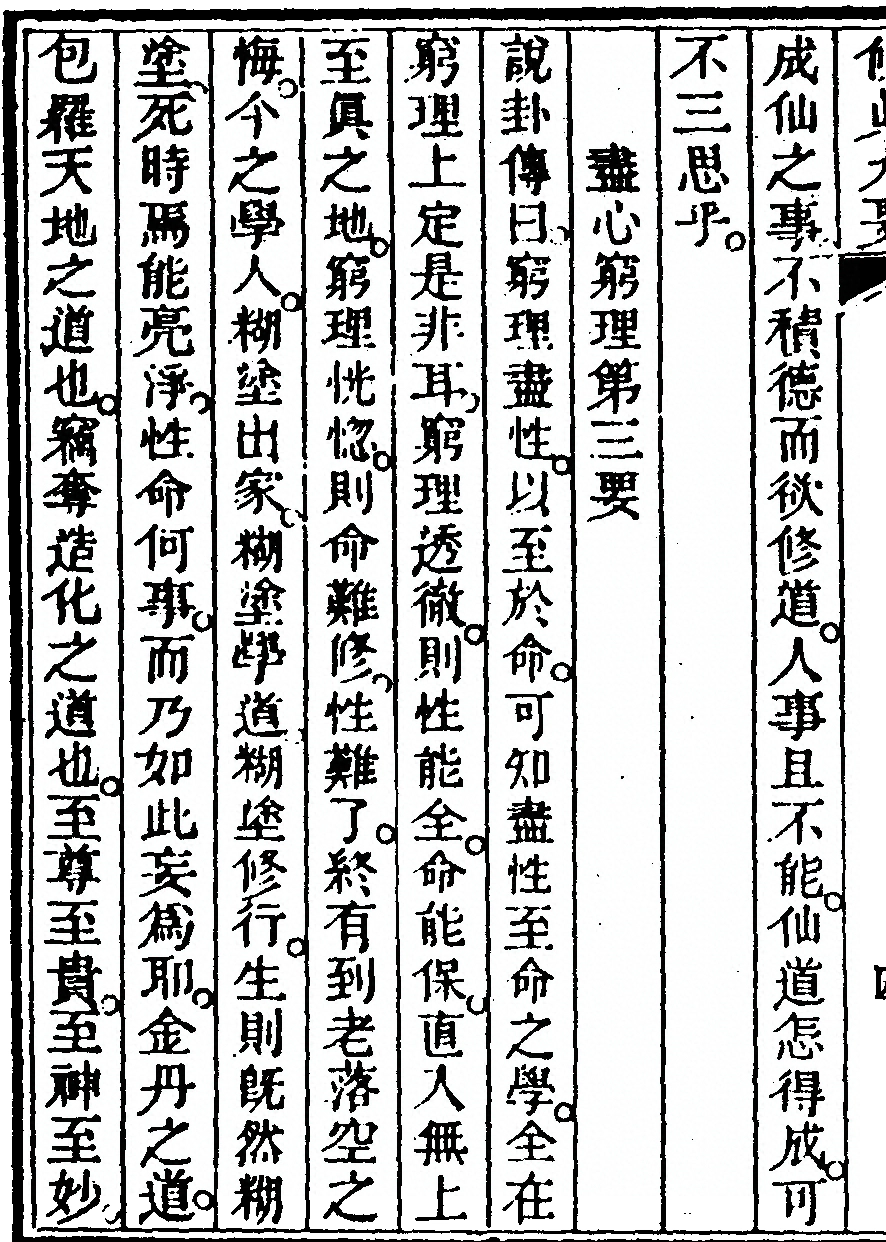 成仙之事不積德而欲修道。人事且不能。仙道怎得成。可
不三思乎。
盡心窮理第三要
說卦傳曰。窮理盡性。以至於命。可知盡性至命之學。全在
窮理上定是非耳。窮理透徹。則性能全。命能保。直入無上
至眞之地。窮理恍惚。則命難修。性難了。終有到老落空之
悔。今之學人。糊塗出家。糊塗學道。糊塗修行。生則旣然糊
塗。死時焉能亮淨。性命何事。而乃如此妄爲耶。金丹之道。
包羅天地之道也。竊奪造化之道也。至尊至貴。至神至妙。